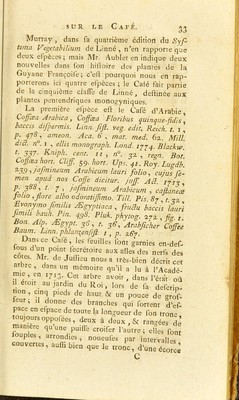 SUR LE CAFÉ. 33
Murray, dans sa quatrième édition du Sys-
tema Vegetabilium de Linné, n'en rapporte que
deux espèces; mais Mr. Aublet en indique deux
nouvelles dans son histoire des plantes de la
Guyane Françoise; c'est pourquoi nous en rap-
porterons ici quatre espèces; le Café fait partie
de la cinquième classe de Linné, destinée aux
plantes pentendriques monogyniques.
La première espèce est le Café d'Arabie,
Coffæa Arabica, Coffæa Floribus quinque-fidis,
baccis dispermis. Linn. sist. veg. edit. Reich. t. 1,
p. 478, amœn. Aca. 6, mat. med. 62. Mill.
dict. n°. 1, ellis monograph. Lond. 1774. Blackw.
t. 337. Kniph. cent. 11, n°. 32, regn. Bor.
Coffæa hort. Cliff. 59. hort. Ups. 41. Roy. Lugdb.
239, jasmineum Arabicum lauri folio, cujus se-
men apud nos Coffe dicitur. juss. Act. 1713,
p. 388, t. 7, jasmineum Arabicum, castaneæ
folio, flore albo odoratissimo. Till. Pis. 87, t. 32,
Evonymo similis Ægyptiaca, fructu baccis lauri
simili bauh. Pin. 498. Pluk. phytog. 272, fig. 1.
Bon. Alp. Ægypt. 36, t. 36, Arabischer Coffee
Baum. Linn. phlanzensist. 1, p. 267.
Dans ce Café, les feuilles sont garnies en-des-
sous d'un point secrétoire aux alles des nerfs des
côtes. Mr. de Jussieu nous a très-bien décrit cet
arbre, dans un mémoire qu'il a lu à l'Acadé-
mie, en 1715. Cet arbre avoit, dans l'état où
il étoit au jardin du Roi, lors de sa descrip-
tion, cinq pieds de haut & un pouce de gros-
seur; il donne des branches qui sortent d'es-
pace en espace de toute la longueur de son tronc,
toujours opposées, deux à deux, & rangées de
manière qu'une puisse croiser l'autre; elles sont
souples, arrondies, noueuses par intervalles,
couvertes, aussi bien que le tronc, d'une écorce
C